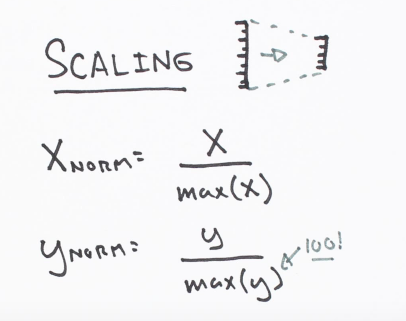 SCALING
XNORM = X / max(X)
yNORM = y / max(y) 100!